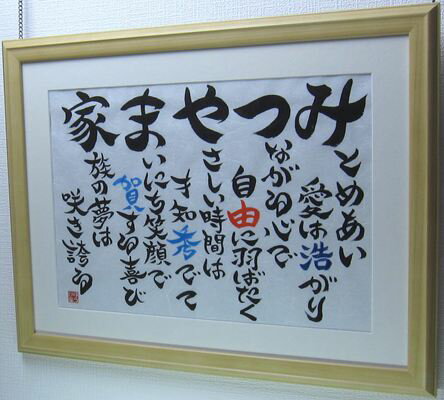 みとめあい
愛は浩がり
つながる心で
自由に羽ばたく
やさしい時間は
才知秀でて
まいにち笑顔で
賀する喜び
家族の夢は
咲き誇る